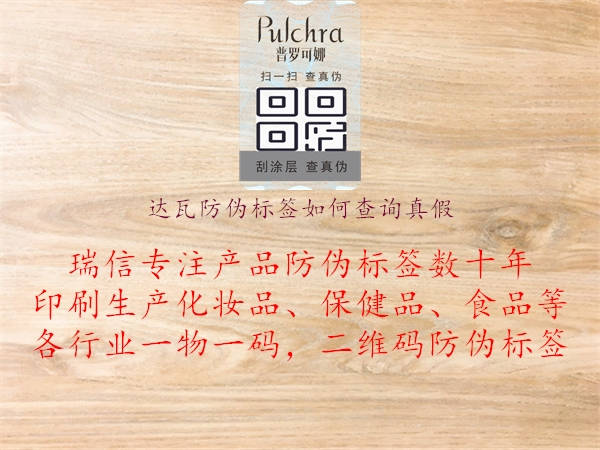 Pulchra
普罗可娜
扫一扫 查真伪
刮涂层 查真伪
达瓦防伪标签如何查询真假
瑞信专注产品防伪标签数十年
印刷生产化妆品、保健品、食品等
各行业一物一码，二维码防伪标签